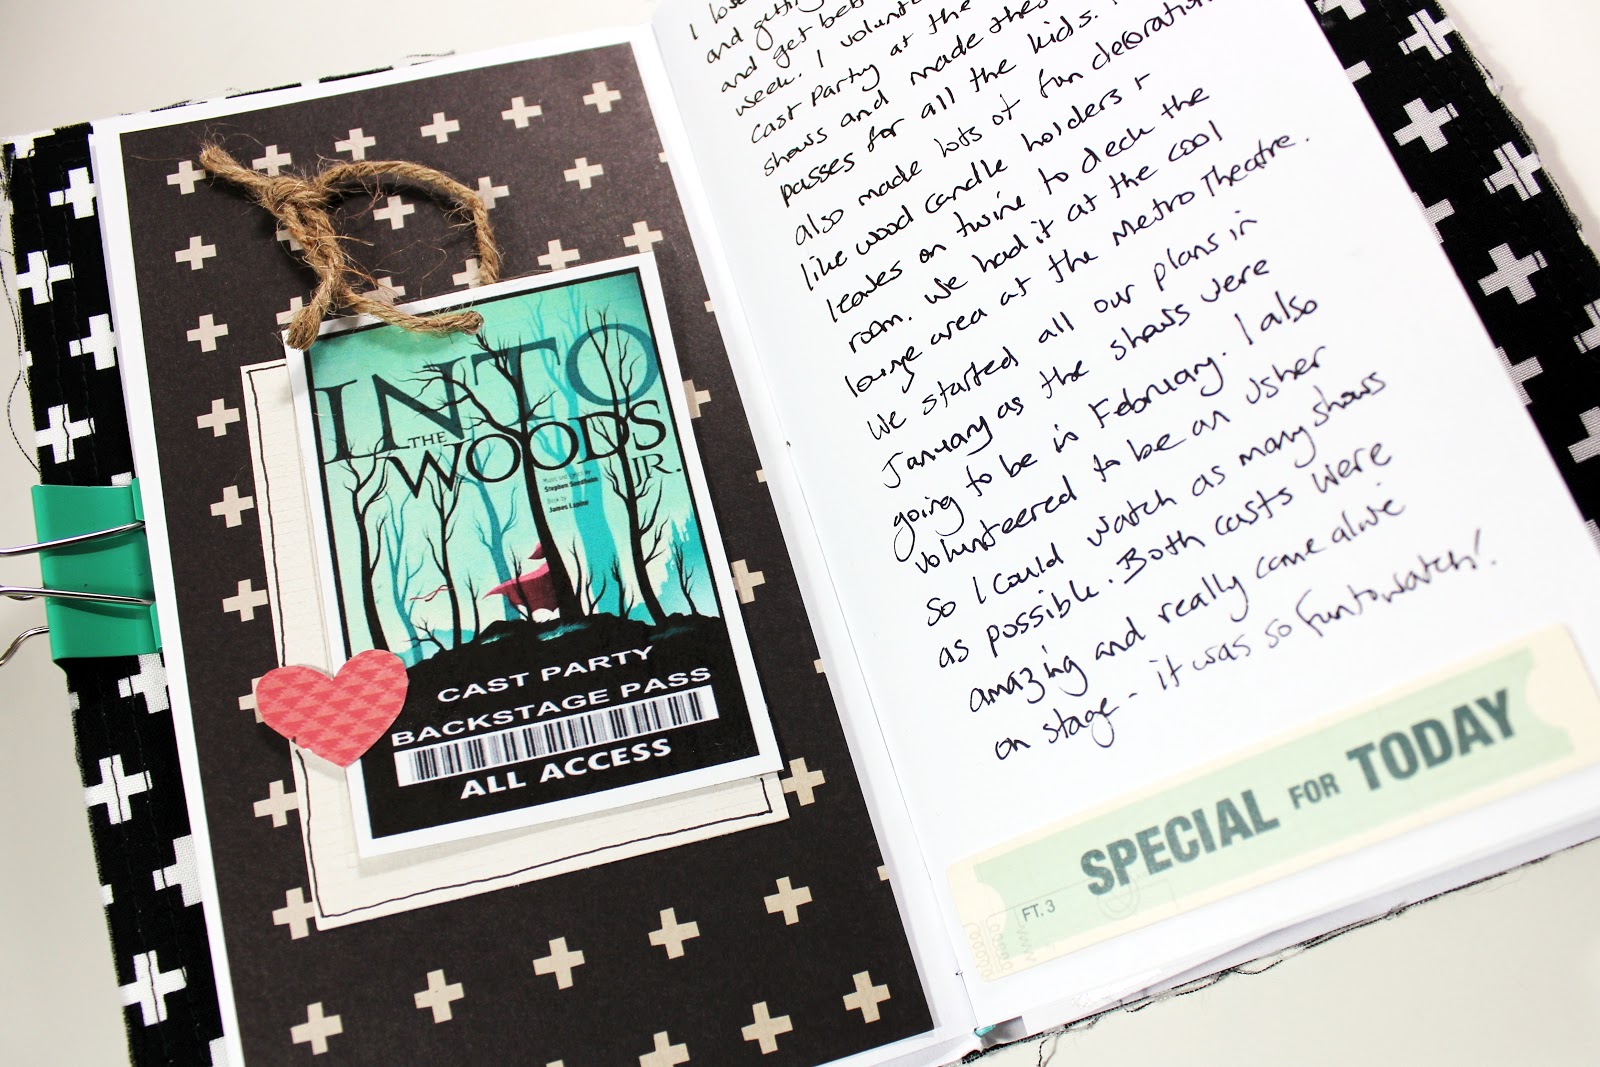 INTO
THE
WOODS
JR.
Music and Lyrics by
Stephen Sondheim
Book by
James Lapine
CAST PARTY
BACKSTAGE PASS
ALL ACCESS
I love
and getting
and get bet
week. I volunt
cast party at the
shows and made thes
passes for all the kids.
also made lots of fun decoration
like wood candle holders +
leaves on twine to deck the
room. We had it at the cool
lounge area at the Metro Theatre.
We started all our plans in
January as the shows were
going to be in February. I also
volunteered to be an usher
so I could watch as many shows
as possible. Both casts were
amazing and really came alive
on stage - it was so fun to watch!
SPECIAL FOR TODAY
FT. 3